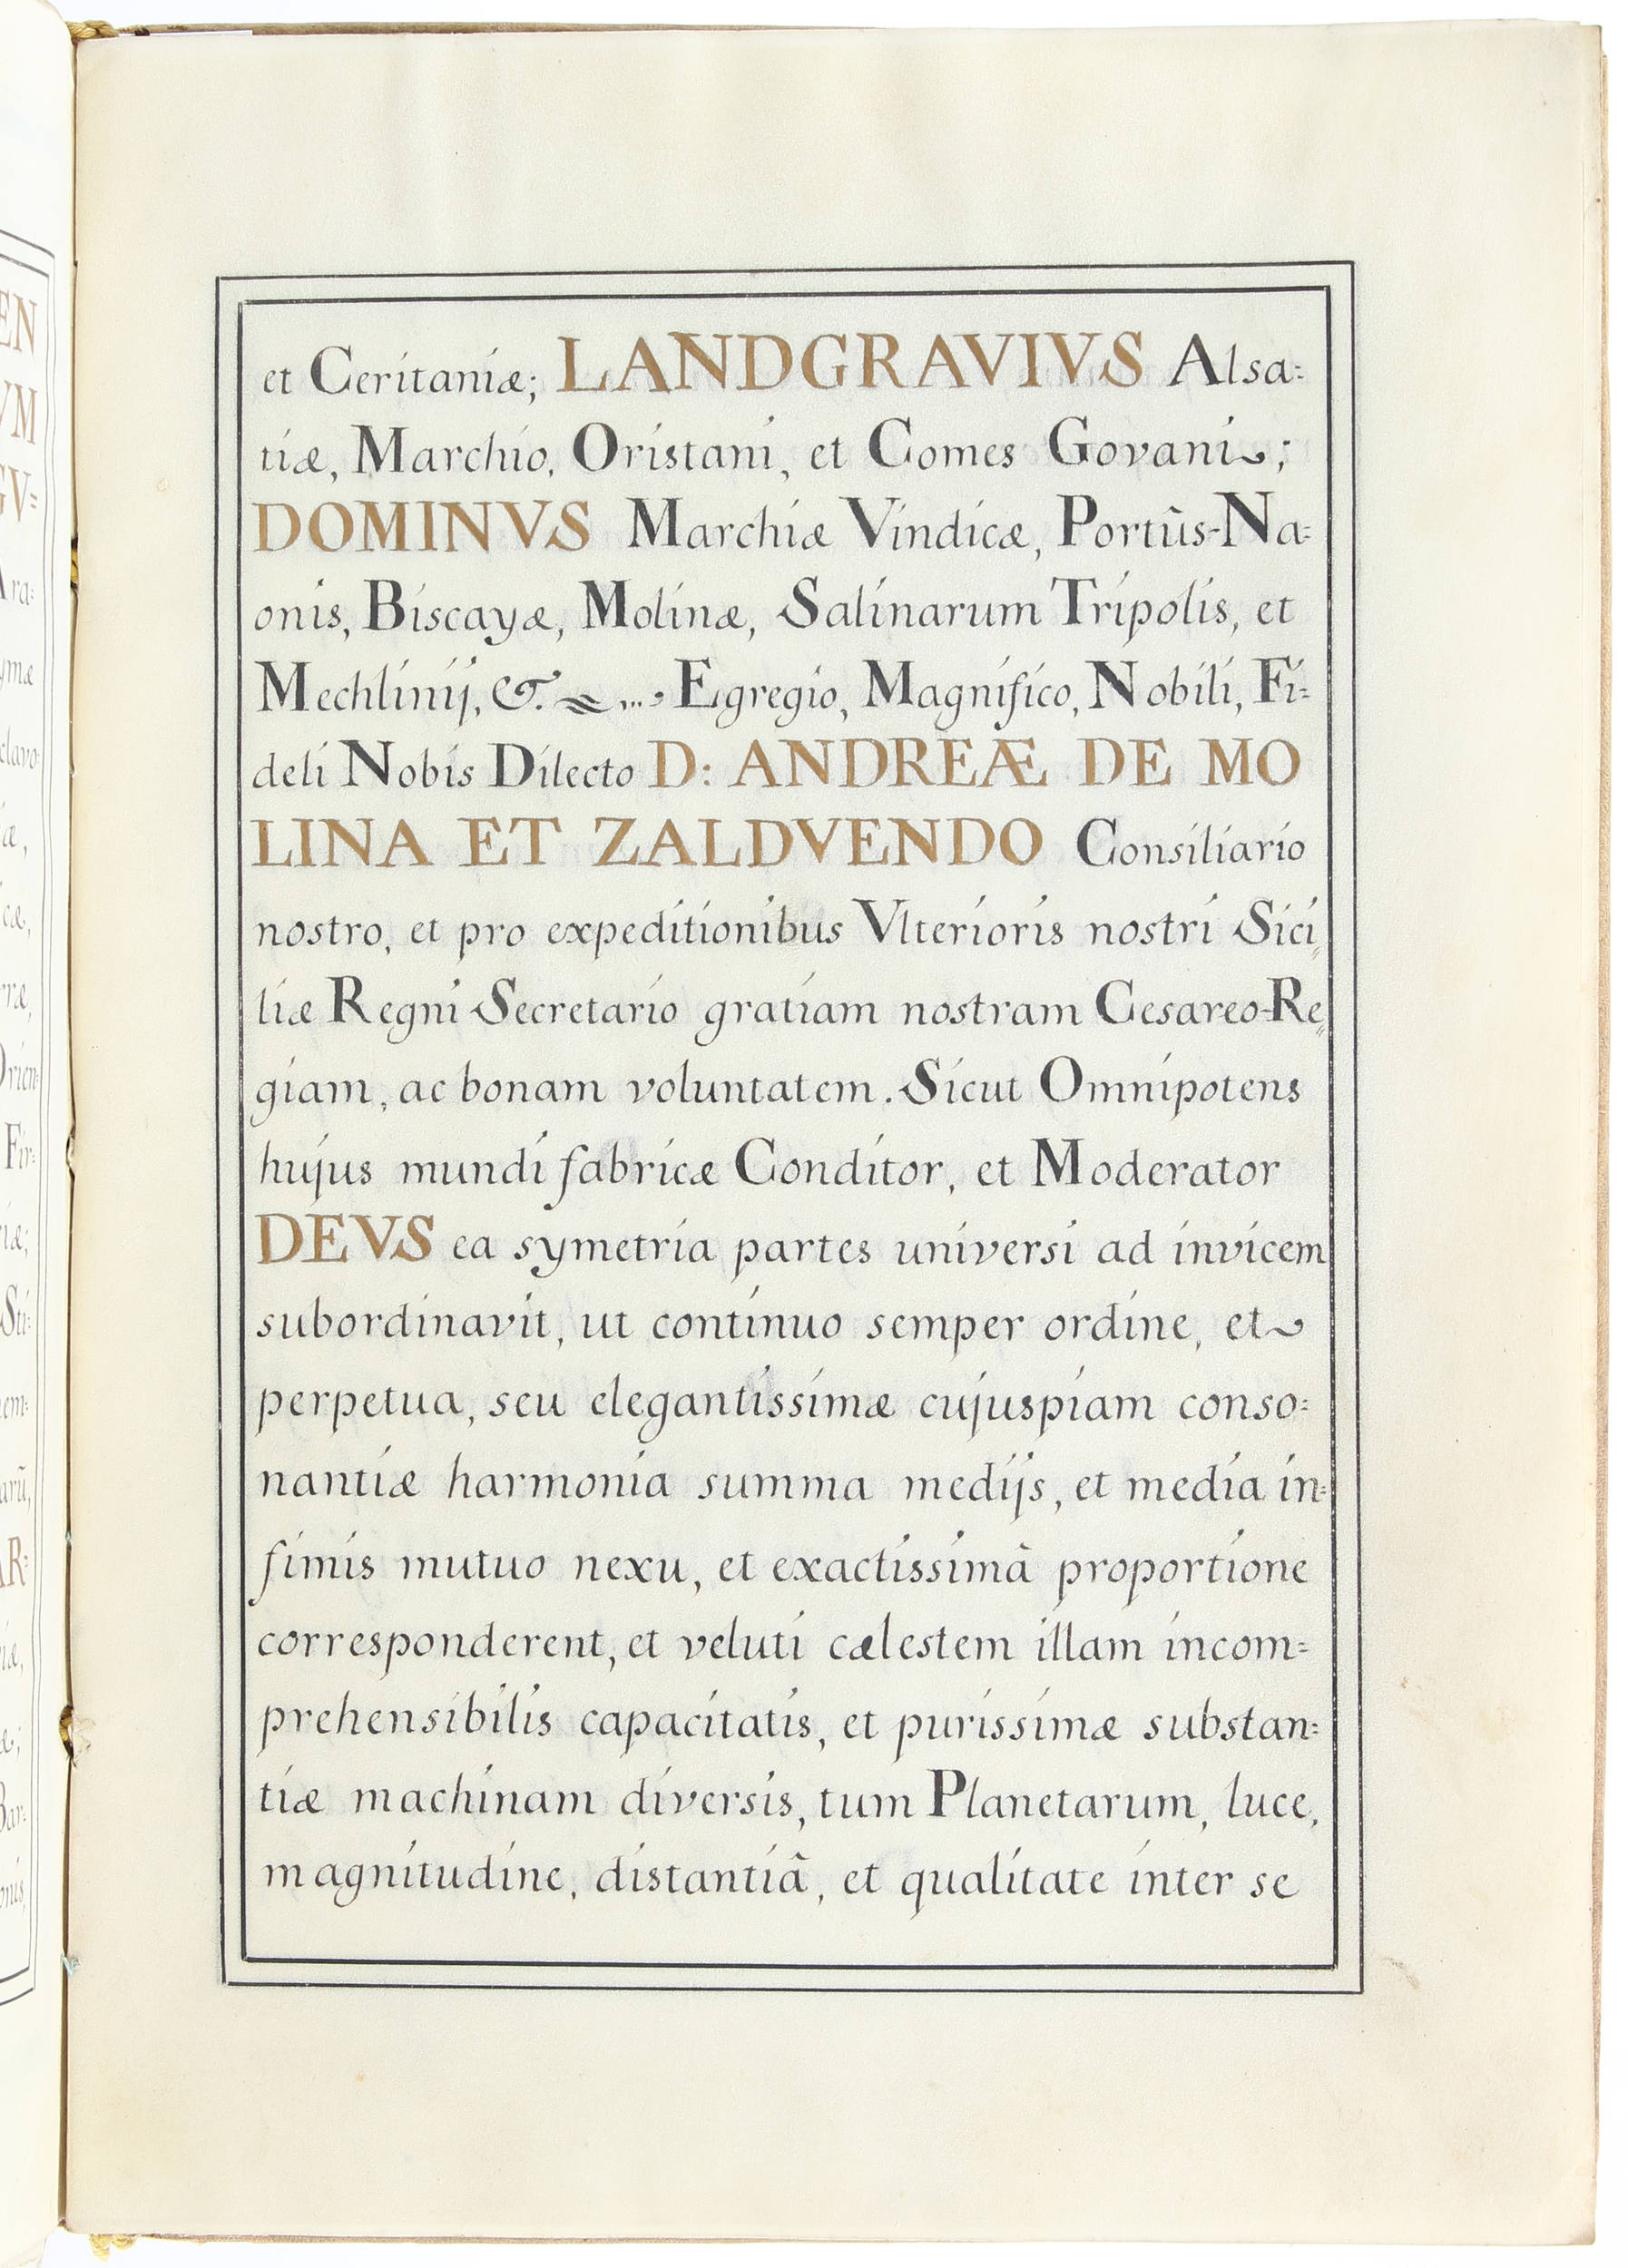 et Ceritaniæ; LANDGRAVIVS Alsa=
tiæ, Marchio, Oristani, et Comes Govani;
DOMINVS Marchiæ Vindicæ, Portûs-Na=
onis, Biscayæ, Molinæ, Salinarum Tripolis, et
Mechlinij, &. ... Egregio, Magnifico, Nobili, Fi=
deli Nobis Dilecto D: ANDREÆ DE MO
LINA ET ZALDVENDO Consiliario
nostro, et pro expeditionibus Vlterioris nostri Sici=
liæ Regni Secretario gratiam nostram Cesareo-Re=
giam, ac bonam voluntatem. Sicut Omnipotens
hujus mundi fabricæ Conditor, et Moderator
DEVS ea symetria partes universi ad invicem
subordinavit, ut continuo semper ordine, et
perpetua, seu elegantissimæ cujuspiam conso=
nantiæ harmonia summa medijs, et media in=
fimis mutuo nexu, et exactissimâ proportione
corresponderent, et veluti cælestem illam incom=
prehensibilis capacitatis, et purissimæ substan=
tiæ machinam diversis, tum Planetarum, luce,
magnitudine, distantiâ, et qualitate inter se